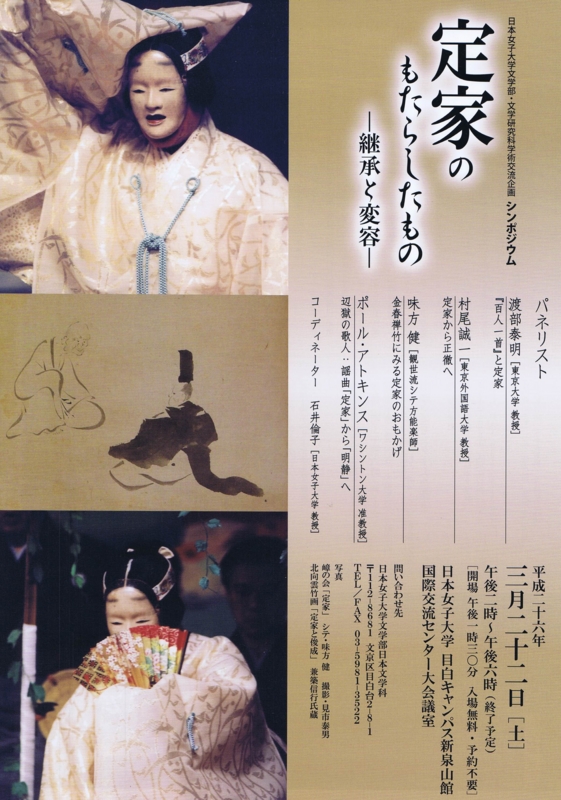 日本女子大学文学部・文学研究科学術交流企画 シンポジウム
定家の
もたらしたもの
―継承と変容―
パネリスト
渡部泰明［東京大学 教授］
『百人一首』と定家
村尾誠一［東京外国語大学 教授］
定家から正徹へ
味方 健［観世流シテ方能楽師］
金春禅竹にみる定家のおもかげ
ポール・アトキンス［ワシントン大学 准教授］
辺獄の歌人：謡曲「定家」から「明静」へ
コーディネーター 石井倫子［日本女子大学 教授］
平成二十六年
三月二十二日［土］
午後二時〜午後六時（終了予定）
［開場 午後一時三〇分 入場無料・予約不要］
日本女子大学 目白キャンパス新泉山館
国際交流センター大会議室
問い合わせ先
日本女子大学文学部日本文学科
〒112-8681 文京区目白台2-8-1
TEL／FAX 03-5981-3522
写真
嶂の会「定家」 シテ・味方 健 撮影・見市泰男
北向雲竹画「定家と俊成」 兼築信行氏蔵